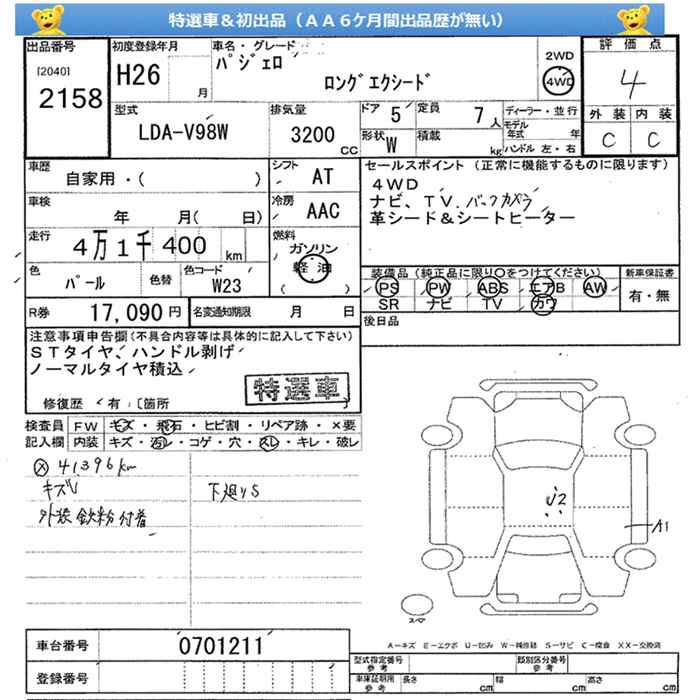 特選車＆初出品（ＡＡ６ケ月間出品歴が無い）
出品番号
[2040]
2158
初度登録年月
H26
月
車名・グレード
パジェロ
ロングエクシード
2WD
4WD
評価点
4
外装 内装
C C
型式
LDA-V98W
排気量
3200 CC
ドア 5
定員 7 人
形状 W
積載 kg
ディーラー・並行
モデル年式 年
ハンドル 左・右
車歴
自家用・( )
シフト AT
車検
年 月( 日)
冷房 AAC
走行
4万1千400 km
燃料
ガソリン
軽油
( )
色 パール
色替
色コード W23
R券 17,090 円
名変通知期限 月 日
セールスポイント（正常に機能するものに限ります）
４ＷＤ
ナビ、ＴＶ.バックカメラ
革シード＆シートヒーター
装備品（純正品に限り○をつけてください）
PS PW ABS エアB AW
SR ナビ TV カワ
新車保証書
有・無
後日品
注意事項申告欄(不具合内容等は具体的に記入して下さい)
ＳＴタイヤ、ハンドル剥げ
ノーマルタイヤ積込
特選車
修復歴 有 〔箇所 〕
検査員記入欄
FW キズ・飛石・ヒビ割・リペア跡・×要
内装 キズ・汚レ・コゲ・穴・スレ・キレ・破レ
41396km
キズU
下廻りS
外装 鉄粉付着
U2
A1
スペア
車台番号 0701211
登録番号
A－キズ E－エクボ U－凹み W－補修跡 S－サビ C－腐食 XX－交換済
型式指定番号 参考
類別区分番号 参考
車庫証明用 参考
長さ cm
幅 cm
高さ cm